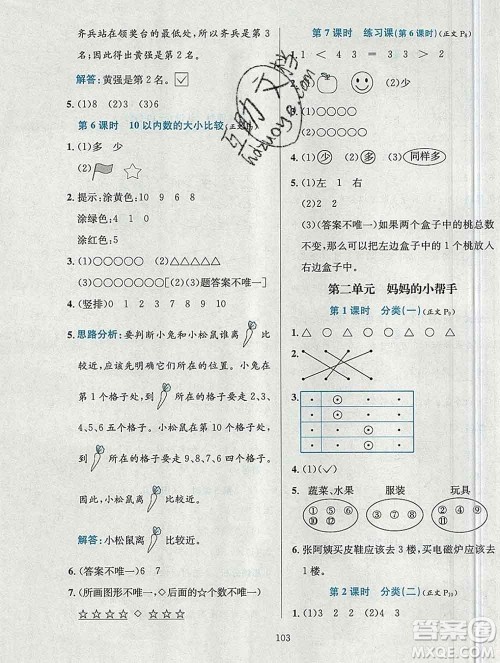 齐兵站在领奖台的最高处。所以齐兵是第1
名。因此得出黄强是第2名。
解答:黄强是第2名。☑
5.(1)8 (2)3
第6课时 10以内数的大小比较
1.(1)○○○○○
(2)
2.提示:涂黄色:10 9 6 8
涂绿色:0 2 4 1
涂红色:5
3.(1)○○○○○ △△△△△△
(2)○○○○ △△△(答案不唯一)
4.(竖排)
5.思路分析:要判断小兔和小松鼠谁离
比较近,应该先明确它们的位置。小兔在
第1个格子处,到所在的格子要走2、3、
4、5、6五个格子;小松鼠在第10个格子处,
到所在的格子要走9、8、7三个格子。
因此,小松鼠离比较近。
解答:小松鼠离比较近。
6.(答案不唯一)6 7
7.(所画图形不唯一)
☆☆☆☆ ☆☆☆☆☆
第7课时 练习课(第6课时)(正文P8)
1. 1 < 4 3 = 3 2 > 1
2.
3.○○○○ ○○○○○
4.(1)少 (2)多 (3)同样多
5.(1)左 1 右
(2)2 2
(3)(答案不唯一)如果两个盒子中的桃总数
不变,那么可以把左边盒子中的1个桃放入
右边盒子中。
第二单元 妈妈的小帮手
第1课时 分类(一)(正文P9)
1.△ ○ △ ○ △ ○ △ △
2.
3.
4.(1)(✓)
5.蔬菜、水果 服装 玩具
①⑤⑦⑩⑪ ②④⑧ ③⑥⑨
6.张阿姨买皮鞋应该去3楼,买电磁炉应该去
1楼。
第2课时 分类(二)(正文P10)
1.(1)3 2 (2)4 3
103